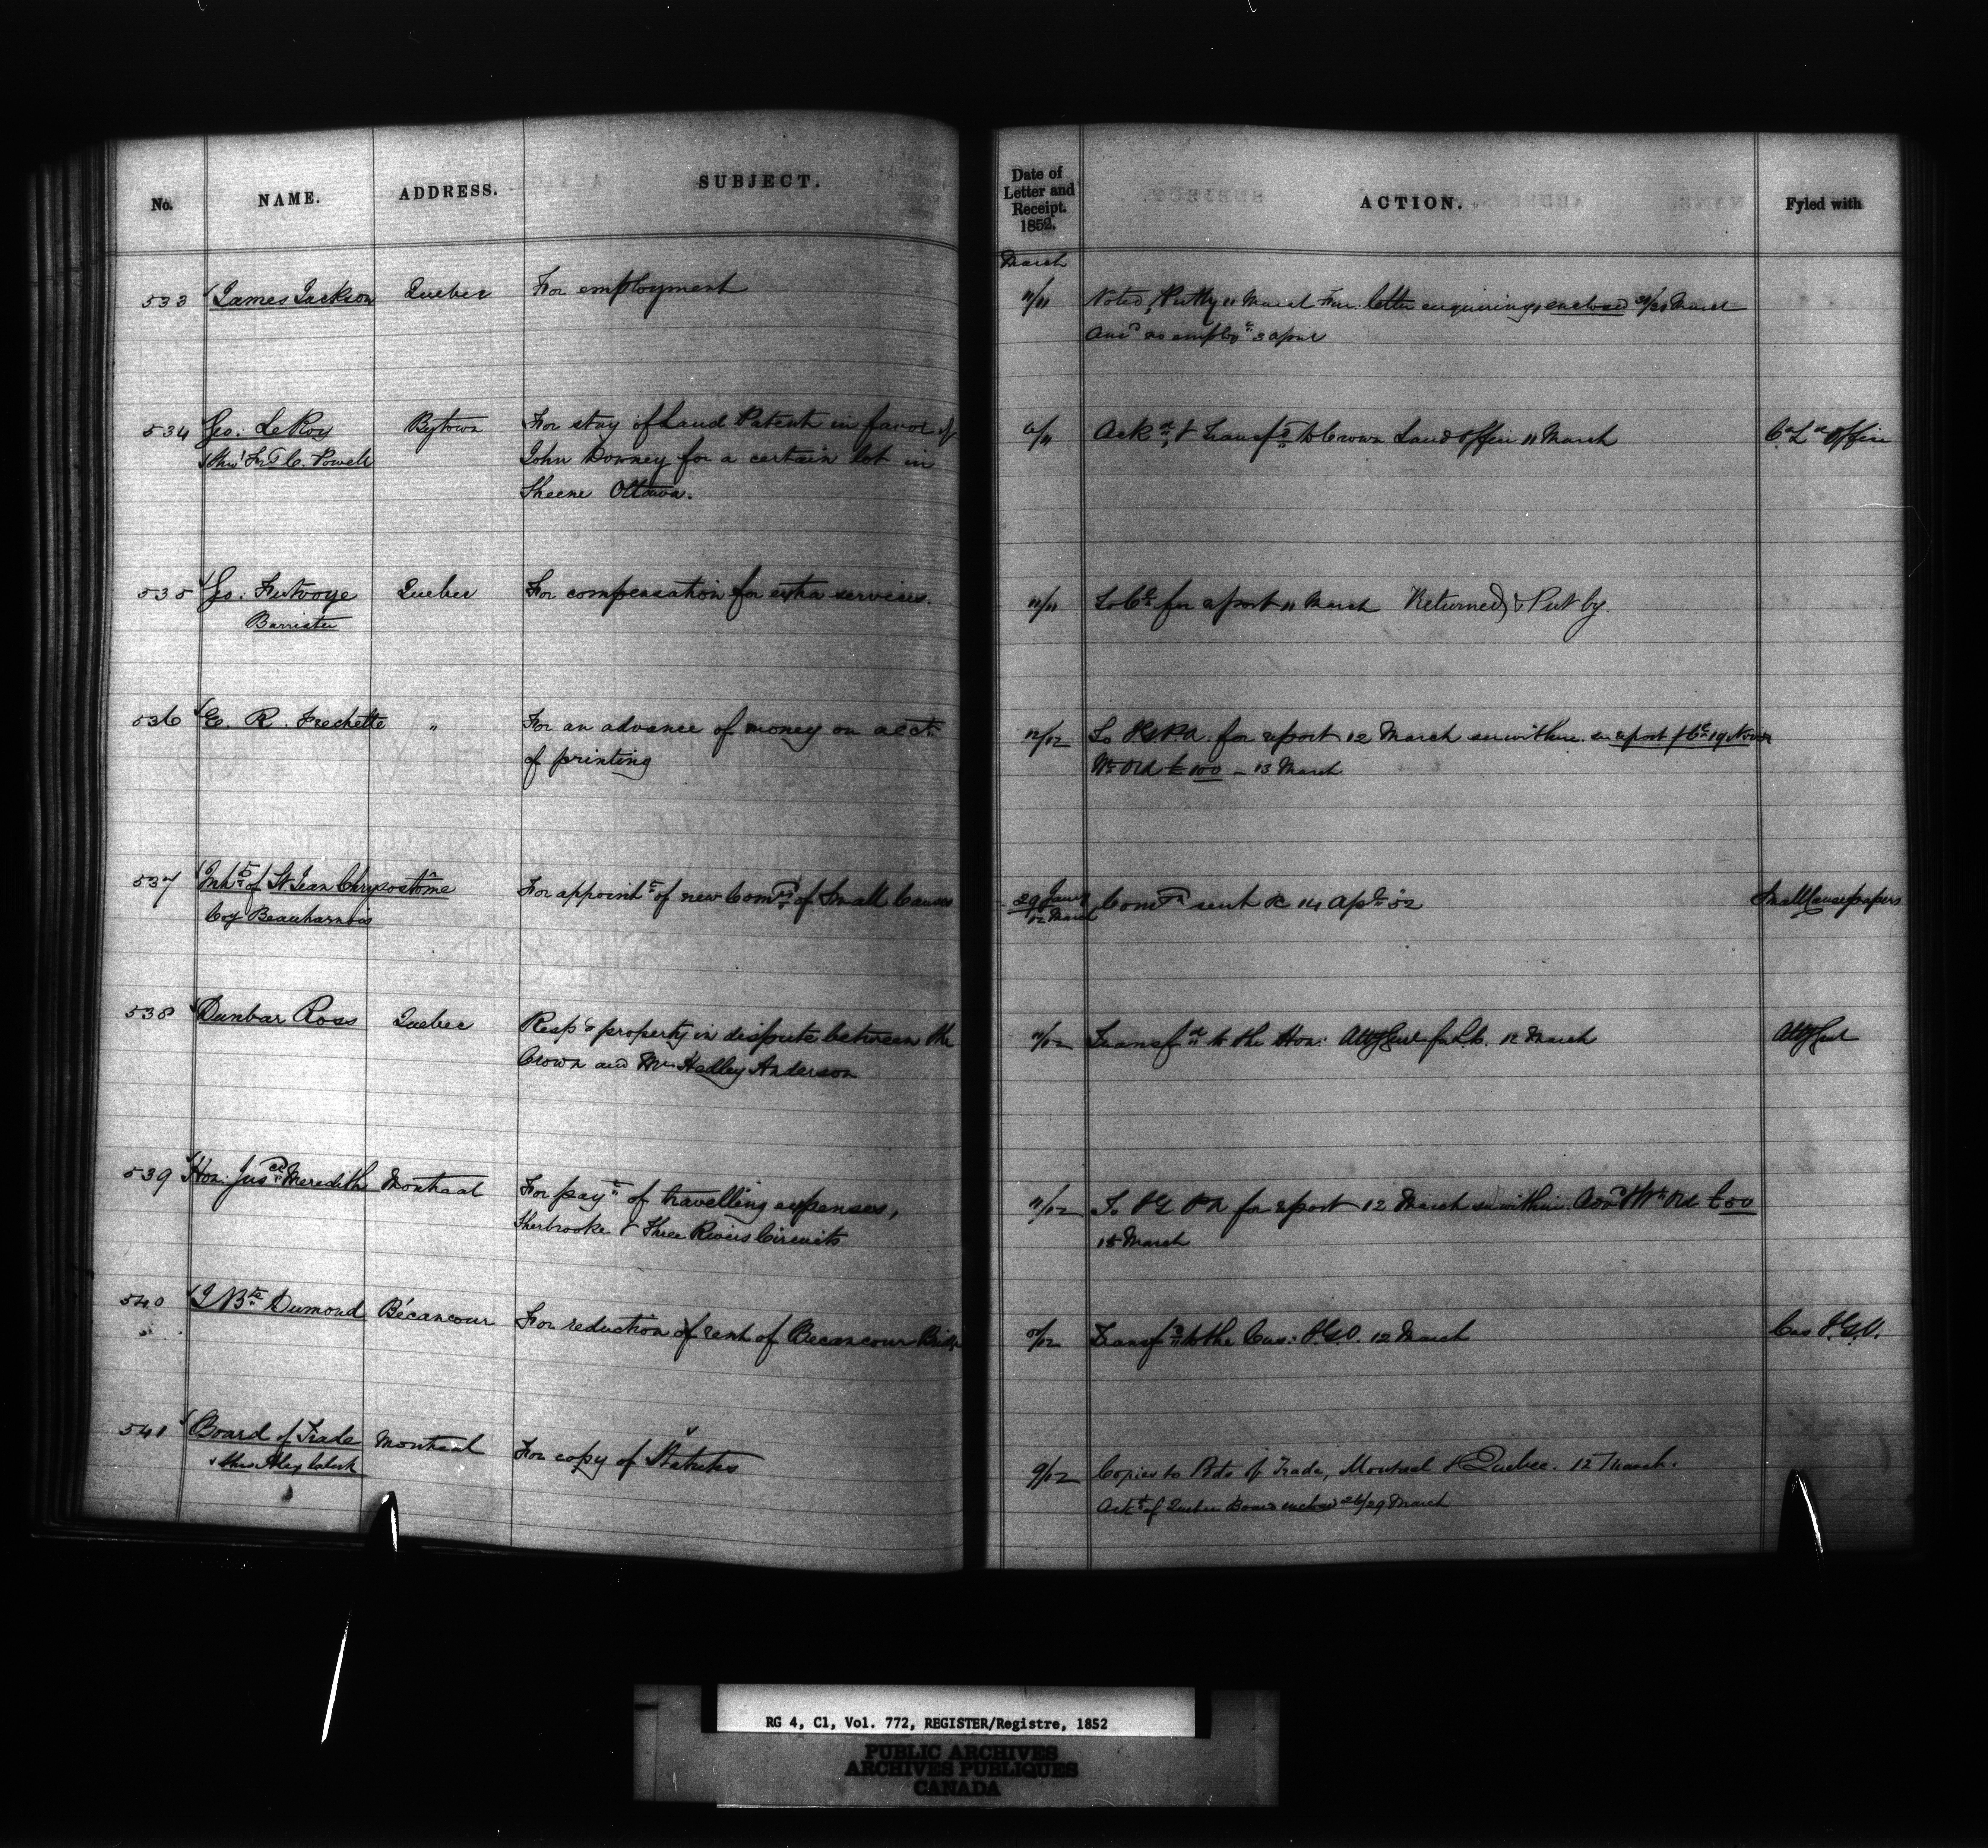 No. NAME. ADDRESS. SUBJECT. Date of Letter and Receipt. 1852. ACTION. Fyled with
March
533 James Jackson Quebec For employment 11/11 Noted, Put by 11 March Fur. letter enquiring, enclosed 30/30 March
Ansd no employt 3 April
534 Geo: LeRoy Bytown For stay of Land Patent in favor of 6/11 Ackd & Transfd to Crown Land Office 11 March Cn Ld Office
C. Powell John Downey for a certain lot in
Sheene Ottawa.
535 Geo: Futvoye Quebec For compensation for extra services. 11/11 To for report 11 March Returned & Put by.
Barrister
536 E. R. Frechette " For an advance of money on acct. 12/12 To I G P A. for report 12 March see within. see report
of printing Wt Ord £ 100 – 13 March
537 Inhts of St Jean Chrysostôme For appointt of new Comrs of Small Causes 29 Jany Comn sent 14 Apl 52 Small Cause papers
Coy Beauharnois 12 March
538 Dunbar Ross Quebec Respg property in dispute between the 11/12 Transfd to the Hon: Atty Genl for L.C. 12 March Atty Genl
Crown and Mr Hedley Anderson
539 Hon: Jusce Meredith Montreal For payt of travelling expenses, 11/12 To I G P A for report 12 March see within. Wt Ord £50
Sherbrooke & Three Rivers Circuits 15 March
540 J Bte Dumond Bécancour For reduction of rent of Becancour Bridge 0/12 Transfd to the Cus: I.G.O. 12 March Cus I.G.O.
541 Board of Trade Montreal For copy of Statutes 9/12 Copies to Bds of Trade, Montreal & Quebec. 12 March.
Ackt of Quebec Board enclosed 26/29 March
RG 4, C1, Vol. 772, REGISTER/Registre, 1852
PUBLIC ARCHIVES
ARCHIVES PUBLIQUES
CANADA